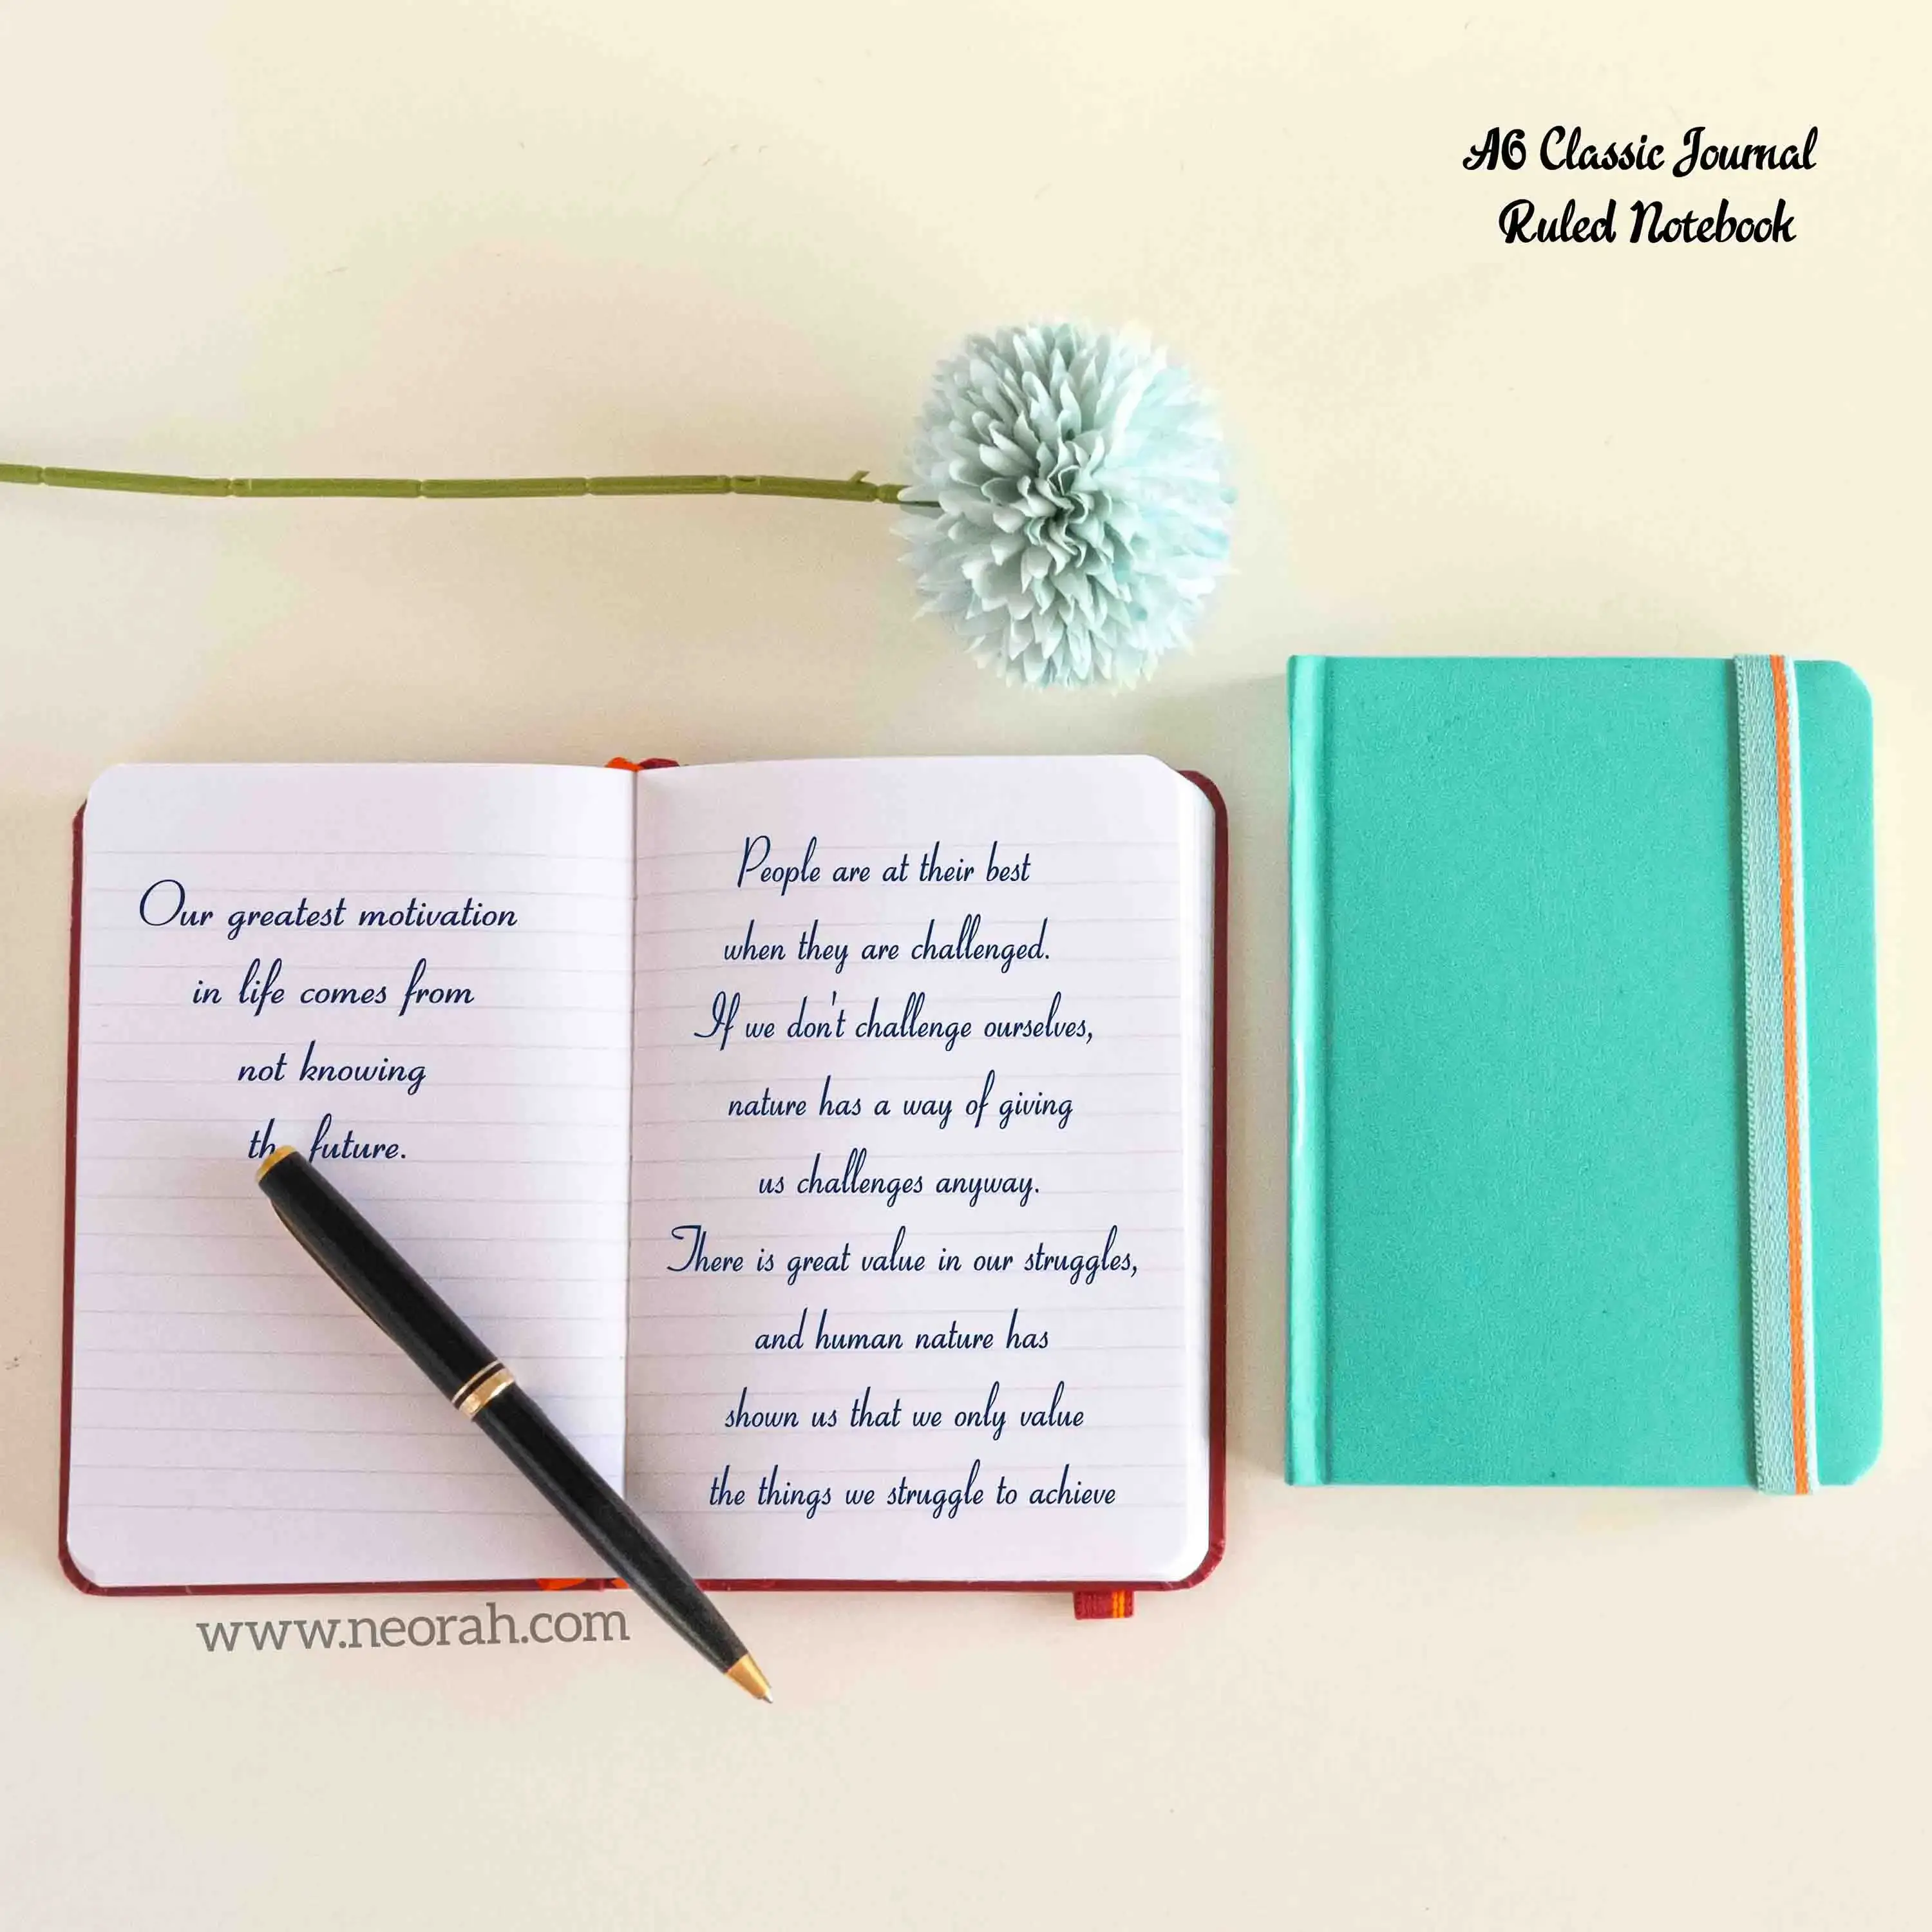 A6 Classic Journal
Ruled Notebook
Our greatest motivation
in life comes from
not knowing
the future.
People are at their best
when they are challenged.
If we don't challenge ourselves,
nature has a way of giving
us challenges anyway.
There is great value in our struggles,
and human nature has
shown us that we only value
the things we struggle to achieve
www.neorah.com